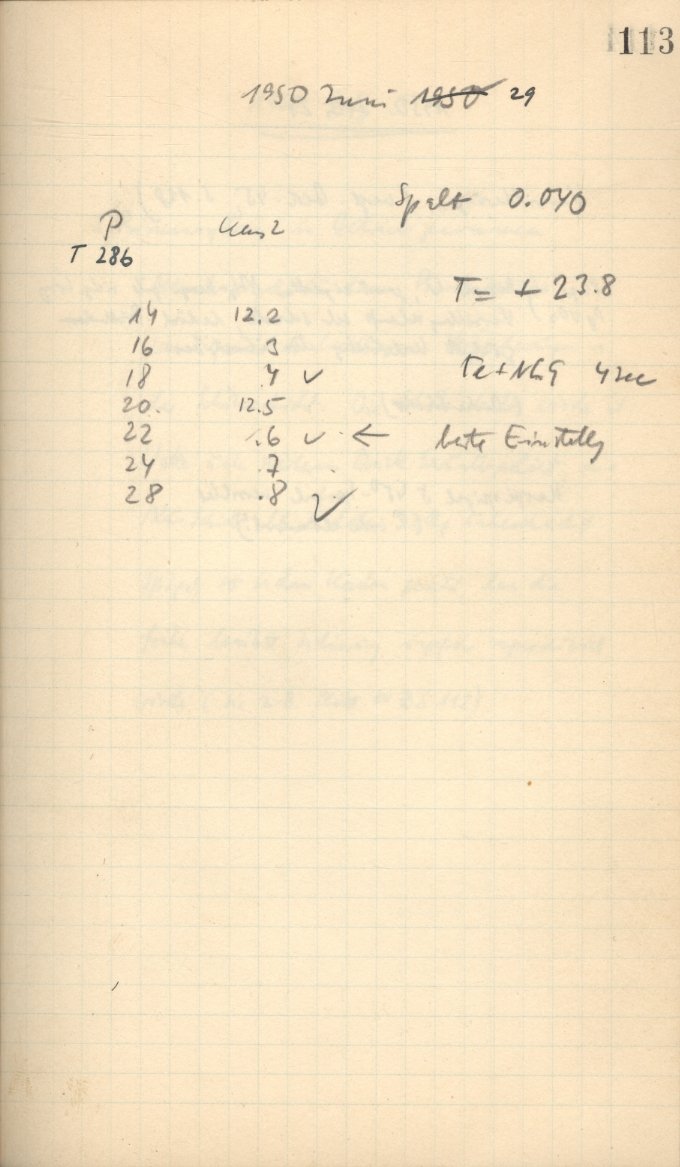 113
1950 Juni 1950 29
Spalt 0.040
P Kam 2
T 286
T = + 23.8
14 12.2
16 3
18 .4 ✓
Fe + 4 sec
20. 12.5
22 .6 ✓ ← beste Einstellg
24 .7
28 .8 ✓